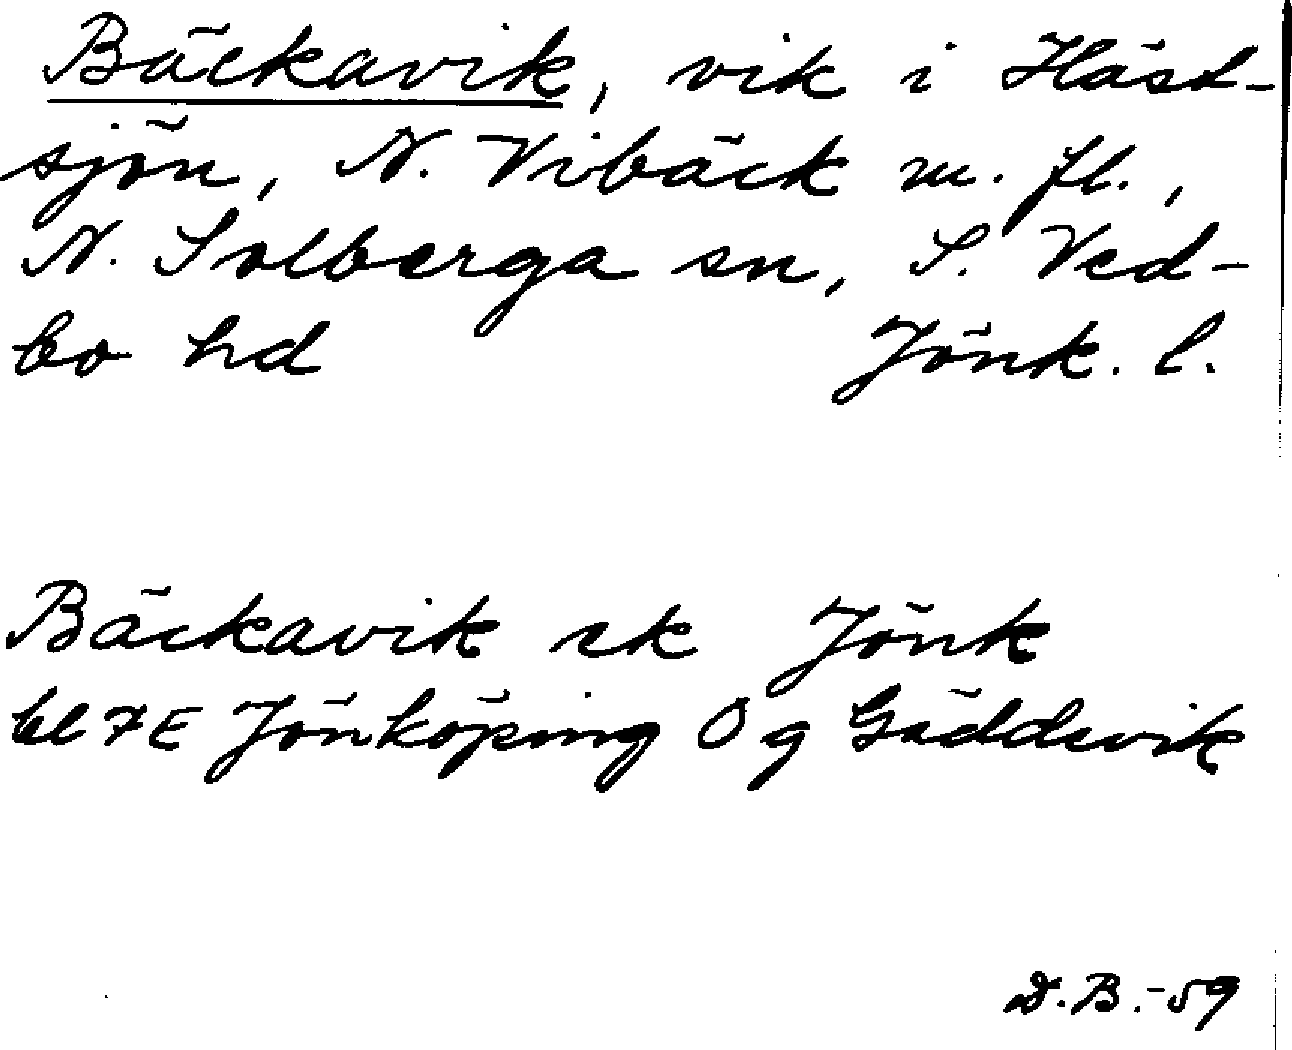 Bäckavik, vik i Häst-
sjön, N. Vibäck m. fl.,
N. Solberga sn, S. Ved-
bo hd Jönk. l.
Bäckavik ek Jönk
bl 7E Jönköping Og Gäddevik
D.B.-59